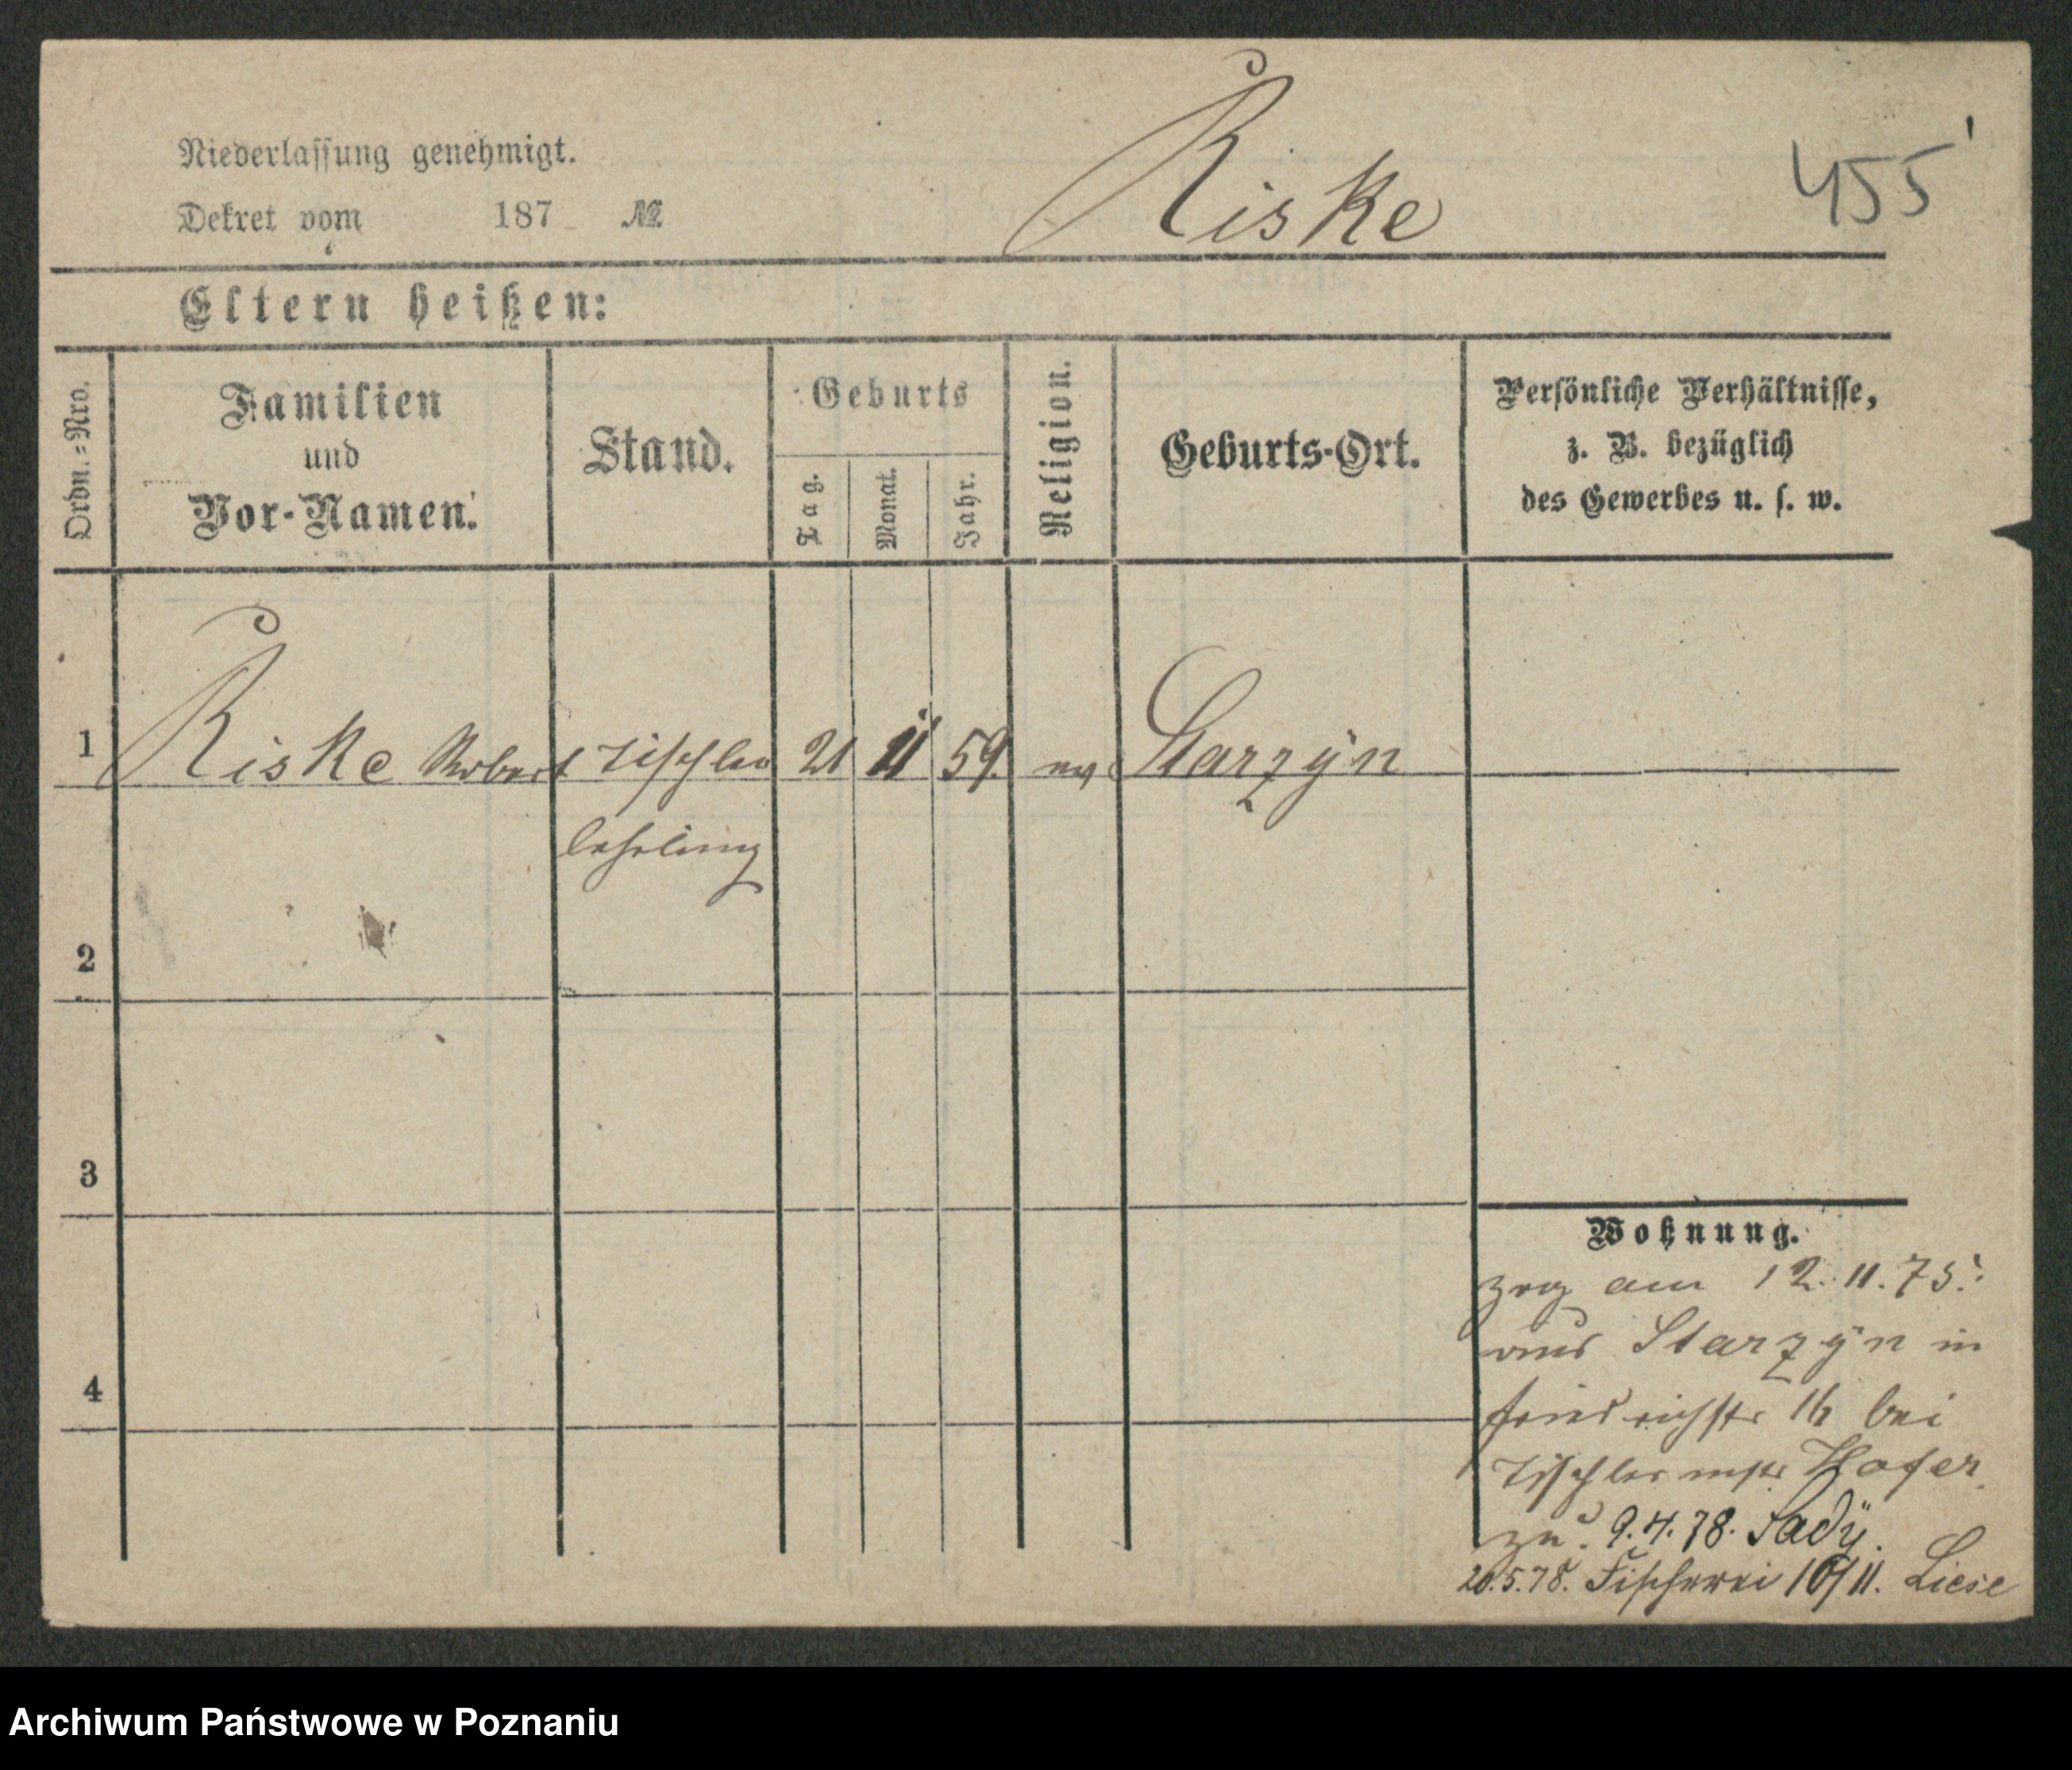 Riske
455
Niederlassung genehmigt.
Dekret vom 187 №
Eltern heißen:
Ordn.=Nro.
Familien
und
Vor-Namen.
Stand.
Geburts
Tag.
Monat.
Jahr.
Religion.
Geburts-Ort.
Persönliche Verhältnisse,
z. B. bezüglich
des Gewerbes u. s. w.
1 Riske Robert Tischler 21 11 59. ev Starzyn
lehrling
2
3
4
Wohnung.
zog am 12.11.75.
aus Starzÿn in
Friedrichstr bei
Tischlermstr Hofer.
9.4.78. Sadÿ.
20.5.78. Fischerei 10/11. Liese
Archiwum Państwowe w Poznaniu